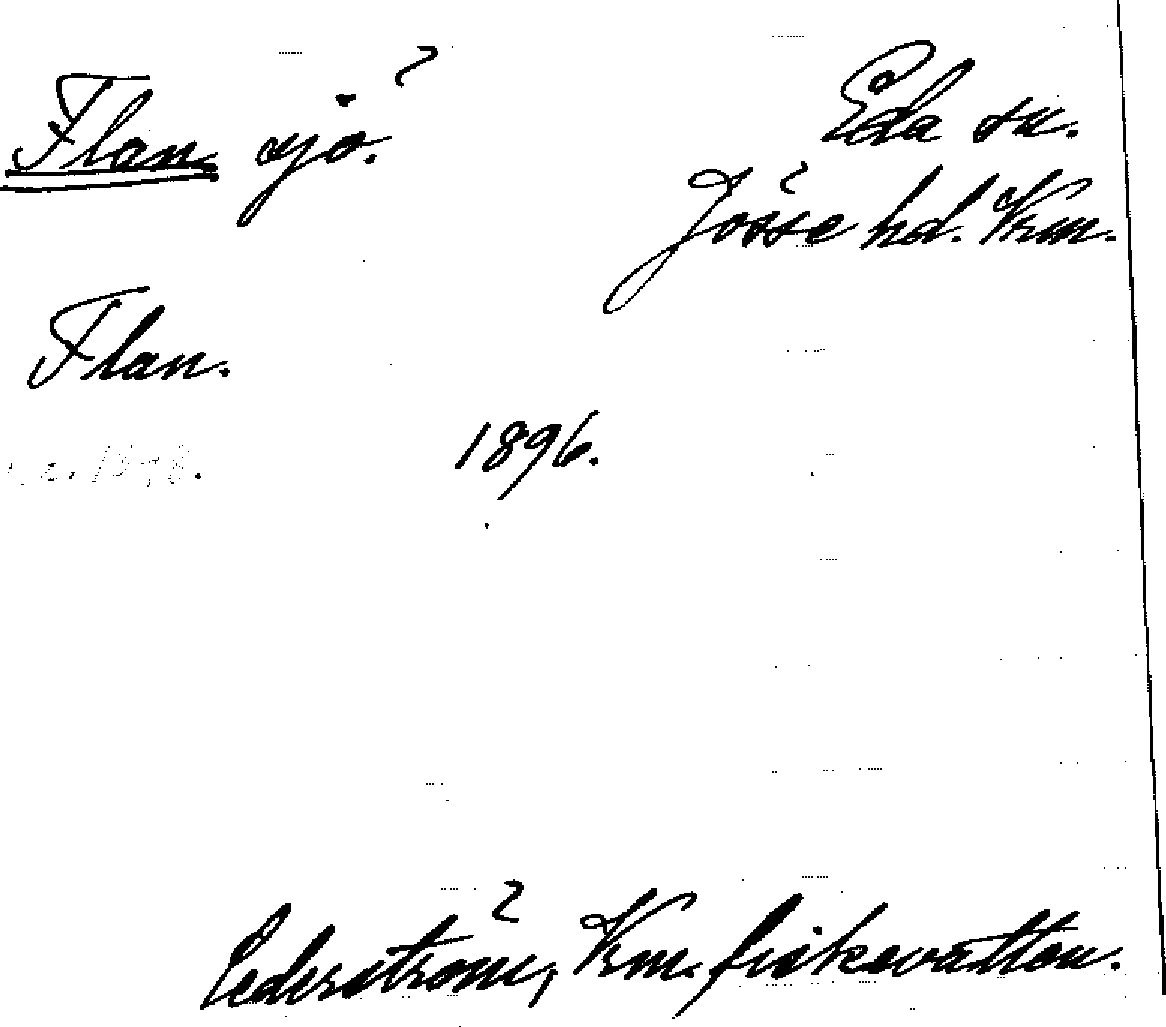 Flan sjö.
Eda sn.
Jösse hd. Vrm.
Flan.
1896.
Cederström, Vrm. fiskevatten.